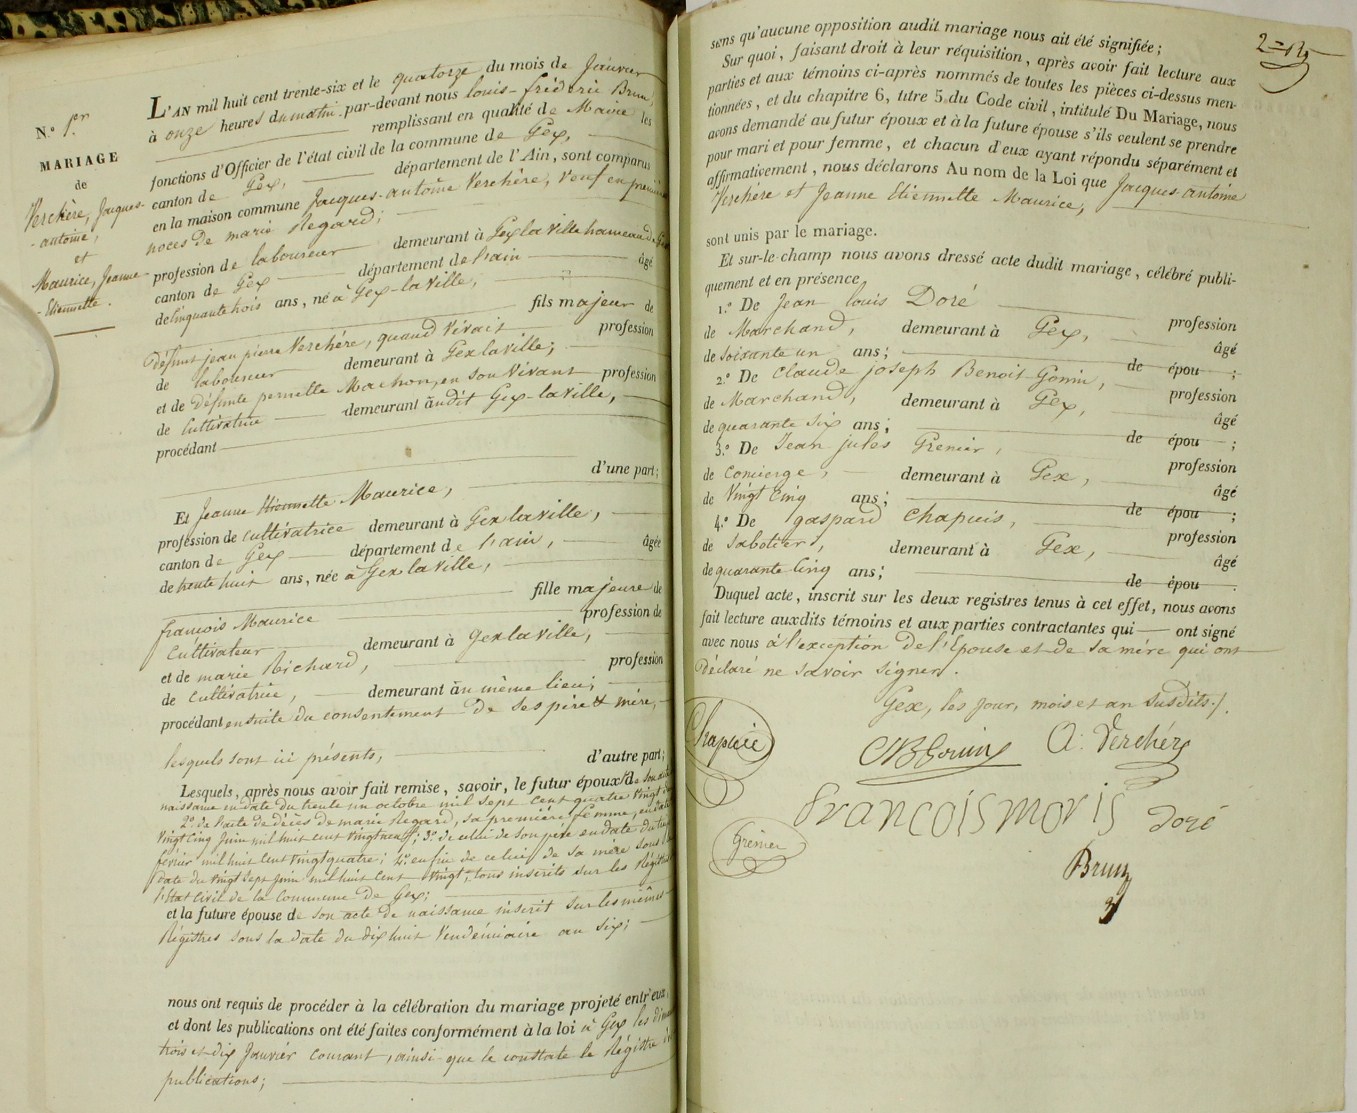 N.º 1.er
MARIAGE
de
Verchère, Jacques-
-antoine,
et
Maurice, Jeanne-
-Etiennette.
L'AN mil huit cent trente-six et le quatorze du mois de Janvier
à onze heures du matin par-devant nous louis-fréderic Brun,
remplissant en qualité de Maire les
fonctions d'Officier de l'état civil de la commune de Gex,
canton de Gex, département de l'Ain, sont comparus
en la maison commune Jacques-antoine Verchère, Veuf en premières
noces de marie Regard;
profession de laboureur demeurant à Gex la Ville hameau de Gex
canton de Gex département de l'ain âgé
de cinquante trois ans, né à Gex-la Ville,
fils majeur de
défunt jean pierre Verchère, quand Vivait profession
de laboureur demeurant à Gex la ville;
et de défunte pernette Machon, en son Vivant profession
de Cultivatrice demeurant audit Gex-la Ville,
procédant
d'une part;
Et Jeanne Etiennette Maurice,
profession de cultivatrice demeurant à Gex la Ville,
canton de Gex département de l'ain, âgée
de trente huit ans, née à Gex la Ville,
fille majeure de
françois Maurice profession de
Cultivateur demeurant à Gex la Ville,
et de marie Richard, profession
de Cultivatrice, demeurant au même lieu;
procédant ensuite du consentement de ses père & mère,
lesquels sont ici présents, d'autre part;
Lesquels, après nous avoir fait remise, savoir, le futur époux 1º de son acte
naissance en date du trente un octobre mil sept cent quatre Vingt
2º de l'acte de décès de marie Regard, sa première femme, en date
Vingt Cinq Juin mil huit cent Vingt neuf; 3º de celui de son père en date du
février mil huit Cent Vingt quatre; 4º enfin de celui de sa mère sous la
date du Vingt Sept Juin mil huit Cent Vingt, tous inscrits sur les Régistres
l'état Civil de la Commune de Gex;
et la future épouse de son acte de naissance inscrit sur les mêmes
Régistres sous la date du dix huit Vendémiaire an Six;
nous ont requis de procéder à la célébration du mariage projeté entr'eux,
et dont les publications ont été faites conformément à la loi à Gex les dimanches
trois et dix Janvier courant, ainsi que le constate le Régistre des
publications;
sans qu'aucune opposition audit mariage nous ait été signifiée;
Sur quoi, faisant droit à leur réquisition, après avoir fait lecture aux
parties et aux témoins ci-après nommés de toutes les pièces ci-dessus men-
tionnées, et du chapitre 6, titre 5 du Code civil, intitulé Du Mariage, nous
avons demandé au futur époux et à la future épouse s'ils veulent se prendre
pour mari et pour femme, et chacun d'eux ayant répondu séparément et
affirmativement, nous déclarons Au nom de la Loi que Jacques antoine
Verchère et Jeanne Etiennette Maurice,
sont unis par le mariage.
Et sur-le-champ nous avons dressé acte dudit mariage, célébré publi-
quement et en présence
1.º De Jean louis Doré profession
de Marchand, demeurant à Gex, âgé
de soixante un ans; de épou ;
2.º De Claude joseph Benoit Gonin, profession
de Marchand, demeurant à Gex, âgé
de quarante six ans; de épou ;
3.º De Jean jules Grenier, profession
de concierge, demeurant à Gex, âgé
de Vingt Cinq ans; de épou ;
4.º De gaspard Chapuis, profession
de Sabotier, demeurant à Gex, âgé
de quarante Cinq ans; de épou .
Duquel acte, inscrit sur les deux registres tenus à cet effet, nous avons
fait lecture auxdits témoins et aux parties contractantes qui ont signé
avec nous à l'exception de l'Epouse et de sa mère qui ont
déclaré ne savoir signer.
Gex, les jour, mois et an susdits./.
Chapuis
CJBGonin
A. Verchére
francoismoris
Doré
Grenier
Brun